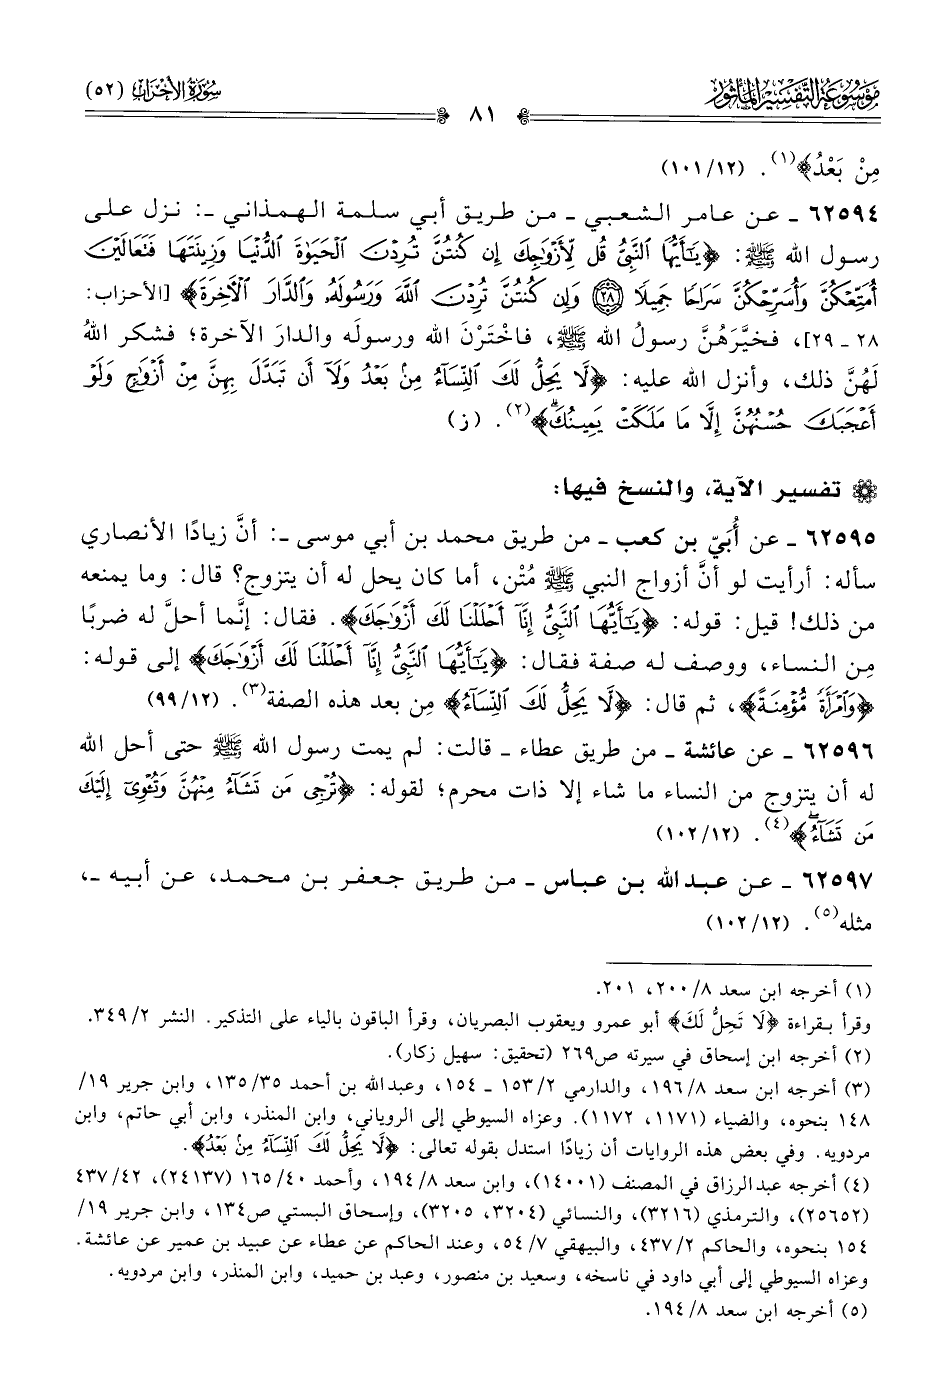 مَوْسُوعَة التَّفْسِير المَأْثُور
سُورَةُ الأَحْزَاب (٥٢)
٨١
مِنْ بَعْدُ﴾(١). (١٢/١٠١)
٦٢٥٩٤ ـ عن عامر الشعبي ـ من طريق أبي سلمة الهمذاني ـ: نزل على
رسول الله ﷺ: ﴿يَٰٓأَيُّهَا ٱلنَّبِيُّ قُل لِّأَزْوَٰجِكَ إِن كُنتُنَّ تُرِدْنَ ٱلْحَيَوٰةَ ٱلدُّنْيَا وَزِينَتَهَا فَتَعَالَيْنَ
أُمَتِّعْكُنَّ وَأُسَرِّحْكُنَّ سَرَاحًا جَمِيلًا ۝٢٨ وَإِن كُنتُنَّ تُرِدْنَ ٱللَّهَ وَرَسُولَهُۥ وَٱلدَّارَ ٱلْأَخِرَةَ﴾ [الأحزاب:
٢٨ ـ ٢٩]، فخيَّرَهُنَّ رسولُ الله ﷺ، فاخْتَرْنَ الله ورسولَه والدارَ الآخرة؛ فشكر اللهُ
لَهُنَّ ذلك، وأنزل الله عليه: ﴿لَّا يَحِلُّ لَكَ ٱلنِّسَآءُ مِنۢ بَعْدُ وَلَآ أَن تَبَدَّلَ بِهِنَّ مِنْ أَزْوَٰجٍ وَلَوْ
أَعْجَبَكَ حُسْنُهُنَّ إِلَّا مَا مَلَكَتْ يَمِينُكَۗ﴾(٢). (ز)
تفسير الآية، والنسخ فيها:
٦٢٥٩٥ ـ عن أُبَيّ بن كعب ـ من طريق محمد بن أبي موسى ـ: أنَّ زيادًا الأنصاري
سأله: أرأيت لو أنَّ أزواج النبي ﷺ مُتْن، أما كان يحل له أن يتزوج؟ قال: وما يمنعه
من ذلك! قيل: قوله: ﴿يَٰٓأَيُّهَا ٱلنَّبِيُّ إِنَّآ أَحْلَلْنَا لَكَ أَزْوَٰجَكَ﴾. فقال: إنَّما أحلَّ له ضربًا
مِن النساء، ووصف له صفة فقال: ﴿يَٰٓأَيُّهَا ٱلنَّبِيُّ إِنَّآ أَحْلَلْنَا لَكَ أَزْوَٰجَكَ﴾ إلى قوله:
﴿وَٱمْرَأَةً مُّؤْمِنَةً﴾، ثم قال: ﴿لَّا يَحِلُّ لَكَ ٱلنِّسَآءُ﴾ مِن بعد هذه الصفة(٣). (١٢/٩٩)
٦٢٥٩٦ ـ عن عائشة ـ من طريق عطاء ـ قالت: لم يمت رسول الله ﷺ حتى أحل الله
له أن يتزوج من النساء ما شاء إلا ذات محرم؛ لقوله: ﴿تُرْجِى مَن تَشَآءُ مِنْهُنَّ وَتُـْٔوِىٓ إِلَيْكَ
مَن تَشَآءُۖ﴾(٤). (١٢/١٠٢)
٦٢٥٩٧ ـ عن عبد الله بن عباس ـ من طريق جعفر بن محمد، عن أبيه ـ،
مثله(٥). (١٢/١٠٢)
(١) أخرجه ابن سعد ٨/٢٠٠، ٢٠١.
وقرأ بقراءة ﴿لَا تَحِلُّ لَكَ﴾ أبو عمرو ويعقوب البصريان، وقرأ الباقون بالياء على التذكير. النشر ٢/٣٤٩.
(٢) أخرجه ابن إسحاق في سيرته ص٢٦٩ (تحقيق: سهيل زكار).
(٣) أخرجه ابن سعد ٨/١٩٦، والدارمي ٢/١٥٣ ـ ١٥٤، وعبد الله بن أحمد ٣٥/١٣٥، وابن جرير ١٩/
١٤٨ بنحوه، والضياء (١١٧١، ١١٧٢). وعزاه السيوطي إلى الروياني، وابن المنذر، وابن أبي حاتم، وابن
مردويه. وفي بعض هذه الروايات أن زيادًا استدل بقوله تعالى: ﴿لَّا يَحِلُّ لَكَ ٱلنِّسَآءُ مِنۢ بَعْدُ﴾.
(٤) أخرجه عبد الرزاق في المصنف (١٤٠٠١)، وابن سعد ٨/١٩٤، وأحمد ٤٠/١٦٥ (٢٤١٣٧)، ٤٢/٤٣٧
(٢٥٦٥٢)، والترمذي (٣٢١٦)، والنسائي (٣٢٠٤، ٣٢٠٥)، وإسحاق البستي ص١٣٤، وابن جرير ١٩/
١٥٤ بنحوه، والحاكم ٢/٤٣٧، والبيهقي ٧/٥٤، وعند الحاكم عن عطاء عن عبيد بن عمير عن عائشة.
وعزاه السيوطي إلى أبي داود في ناسخه، وسعيد بن منصور، وعبد بن حميد، وابن المنذر، وابن مردويه.
(٥) أخرجه ابن سعد ٨/١٩٤.